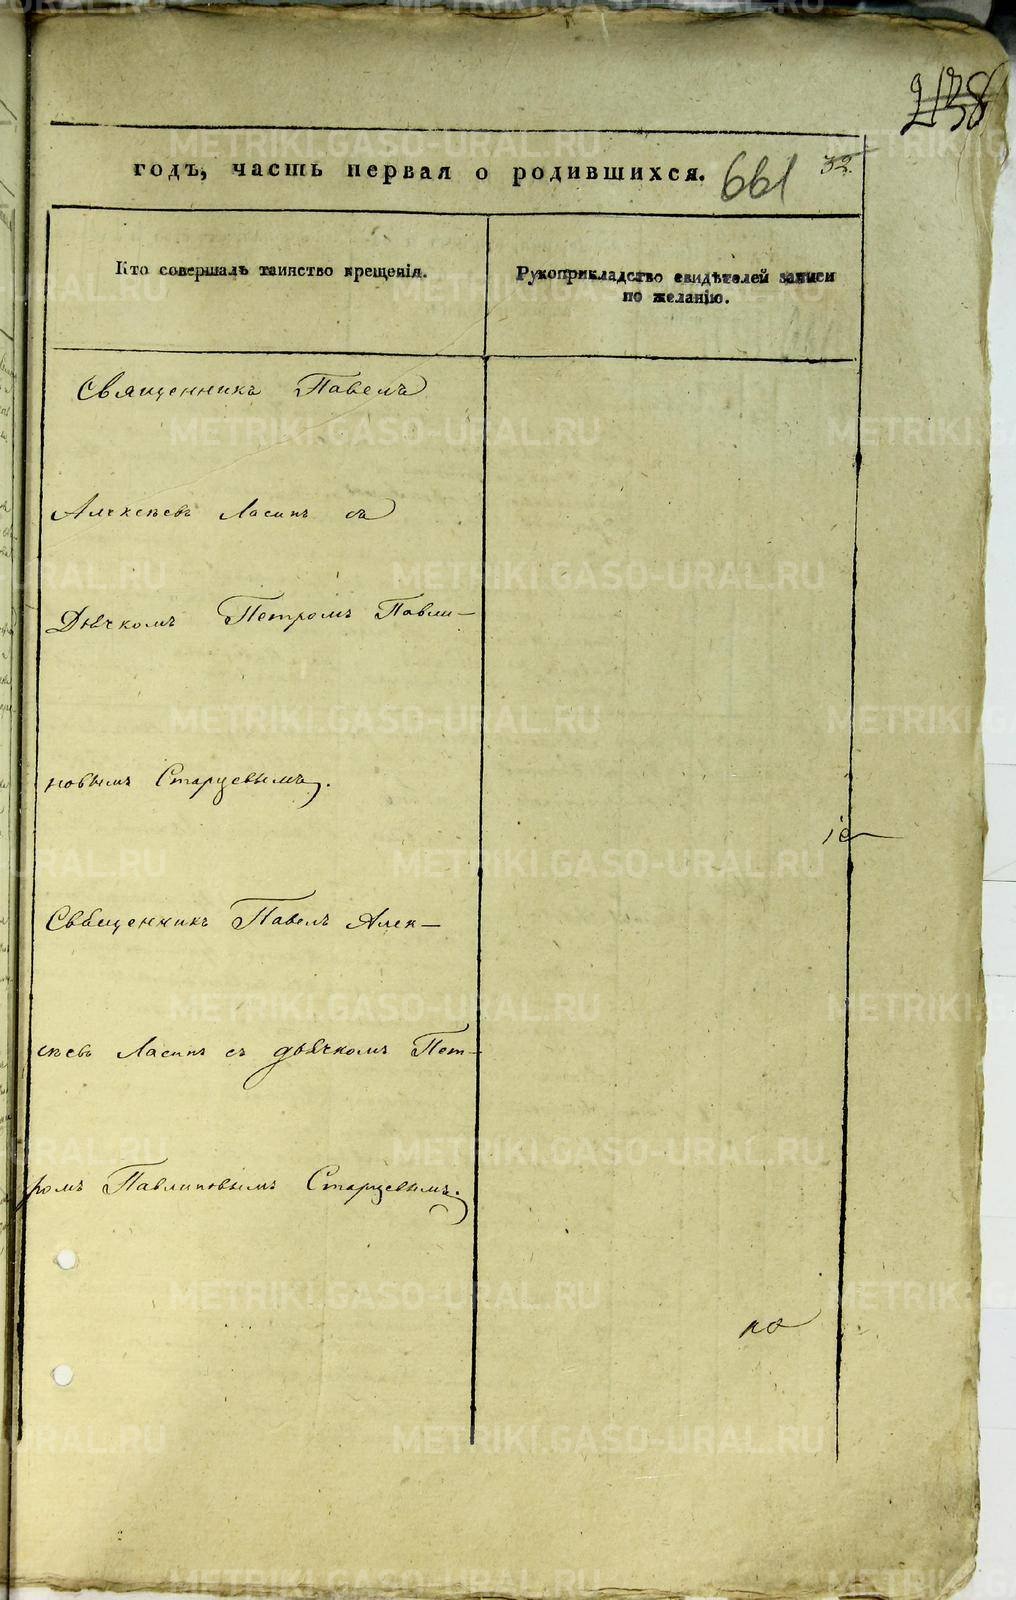 2138
годъ, часть первая о родившихся. 661 32.
Кто совершалъ таинство крещенія.
Рукоприкладство свидѣтелей записи
по желанію.
Священникъ Павелъ
Алексѣевъ Ласинъ съ
Дьячкомъ Петромъ Павли-
новымъ Старцевымъ.
Священникъ Павелъ Алек-
сѣевъ Ласинъ съ дьячкомъ Пет-
ромъ Павлиновымъ Старцевымъ.
по
METRIKI.GASO-URAL.RU